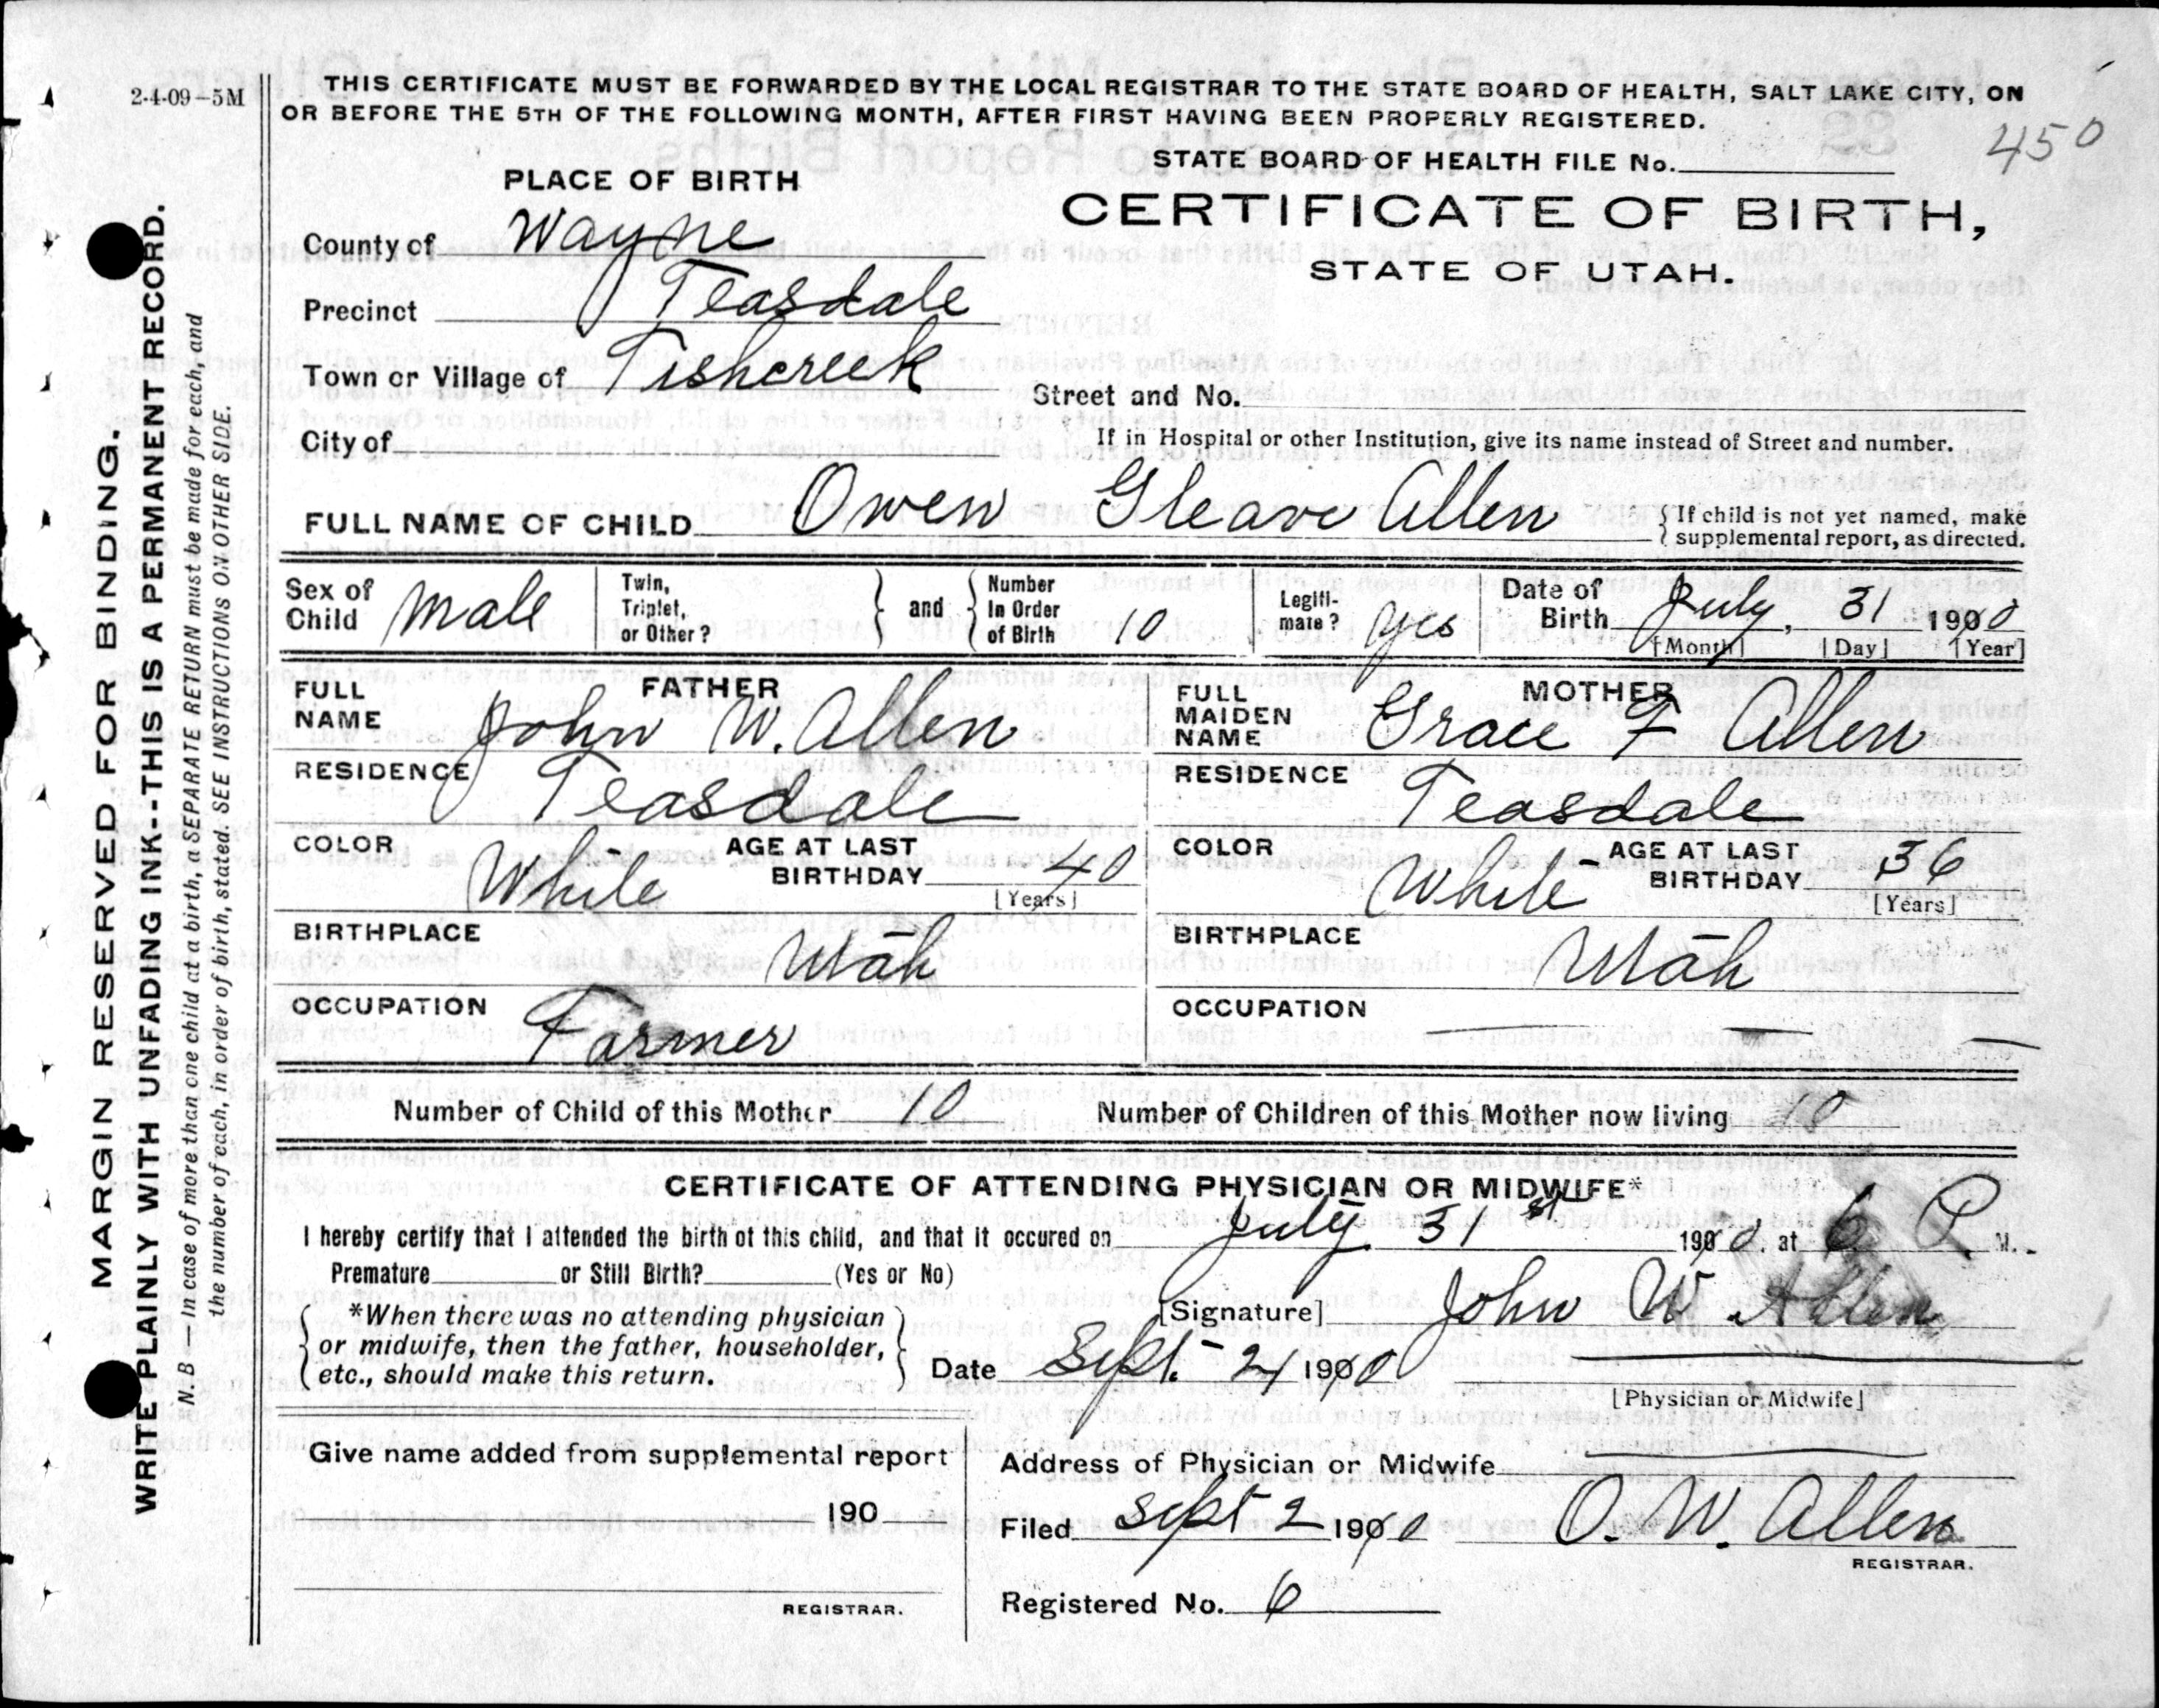 2-4-09-5M
THIS CERTIFICATE MUST BE FORWARDED BY THE LOCAL REGISTRAR TO THE STATE BOARD OF HEALTH, SALT LAKE CITY, ON
OR BEFORE THE 5TH OF THE FOLLOWING MONTH, AFTER FIRST HAVING BEEN PROPERLY REGISTERED.
450
STATE BOARD OF HEALTH FILE No.
PLACE OF BIRTH
CERTIFICATE OF BIRTH,
STATE OF UTAH.
County of Wayne
Precinct Teasdale
Town or Village of Fishcreek
Street and No.
City of
If in Hospital or other Institution, give its name instead of Street and number.
FULL NAME OF CHILD Owen Gleave Allen
{ If child is not yet named, make
supplemental report, as directed.
Sex of Child male
Twin, Triplet, or Other? } and { Number In Order of Birth 10
Legiti-mate? yes
Date of Birth July, 31 1910
[Month] [Day] [Year]
FATHER
FULL NAME John W. Allen
RESIDENCE Teasdale
COLOR White AGE AT LAST BIRTHDAY 40
[Years]
BIRTHPLACE Utah
OCCUPATION Farmer
MOTHER
FULL MAIDEN NAME Grace F Allen
RESIDENCE Teasdale
COLOR White AGE AT LAST BIRTHDAY 36
[Years]
BIRTHPLACE Utah
OCCUPATION
Number of Child of this Mother 10 Number of Children of this Mother now living 10
CERTIFICATE OF ATTENDING PHYSICIAN OR MIDWIFE*
I hereby certify that I attended the birth of this child, and that it occured on July 31st 1910, at 6 P. M.
Premature or Still Birth? (Yes or No)
*When there was no attending physician
or midwife, then the father, householder,
etc., should make this return.
[Signature] John W. Allen
Date Sept. 2, 1910
[Physician or Midwife]
Give name added from supplemental report
190
REGISTRAR.
Address of Physician or Midwife
Filed Sept 2 1910 O. W. Allen
REGISTRAR.
Registered No. 6
MARGIN RESERVED FOR BINDING.
WRITE PLAINLY WITH UNFADING INK--THIS IS A PERMANENT RECORD.
N. B.—In case of more than one child at a birth, a SEPARATE RETURN must be made for each, and
the number of each, in order of birth, stated. SEE INSTRUCTIONS ON OTHER SIDE.